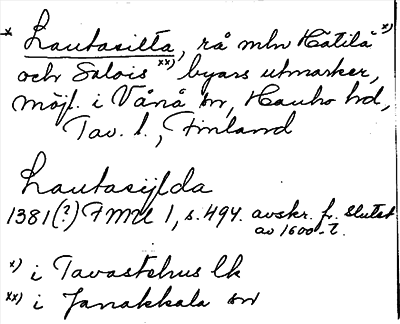 * Lautasilta, rå mln Hätilä *)
och Salois **) byars utmarker,
möjl. i Vånå sn, Hauho hd,
Tav. l., Finland
Lautasylda
1381(?) FMU 1, s. 494. avskr. fr. slutet
av 1600-t.
*) i Tavastehus lk
**) i Janakkala sn